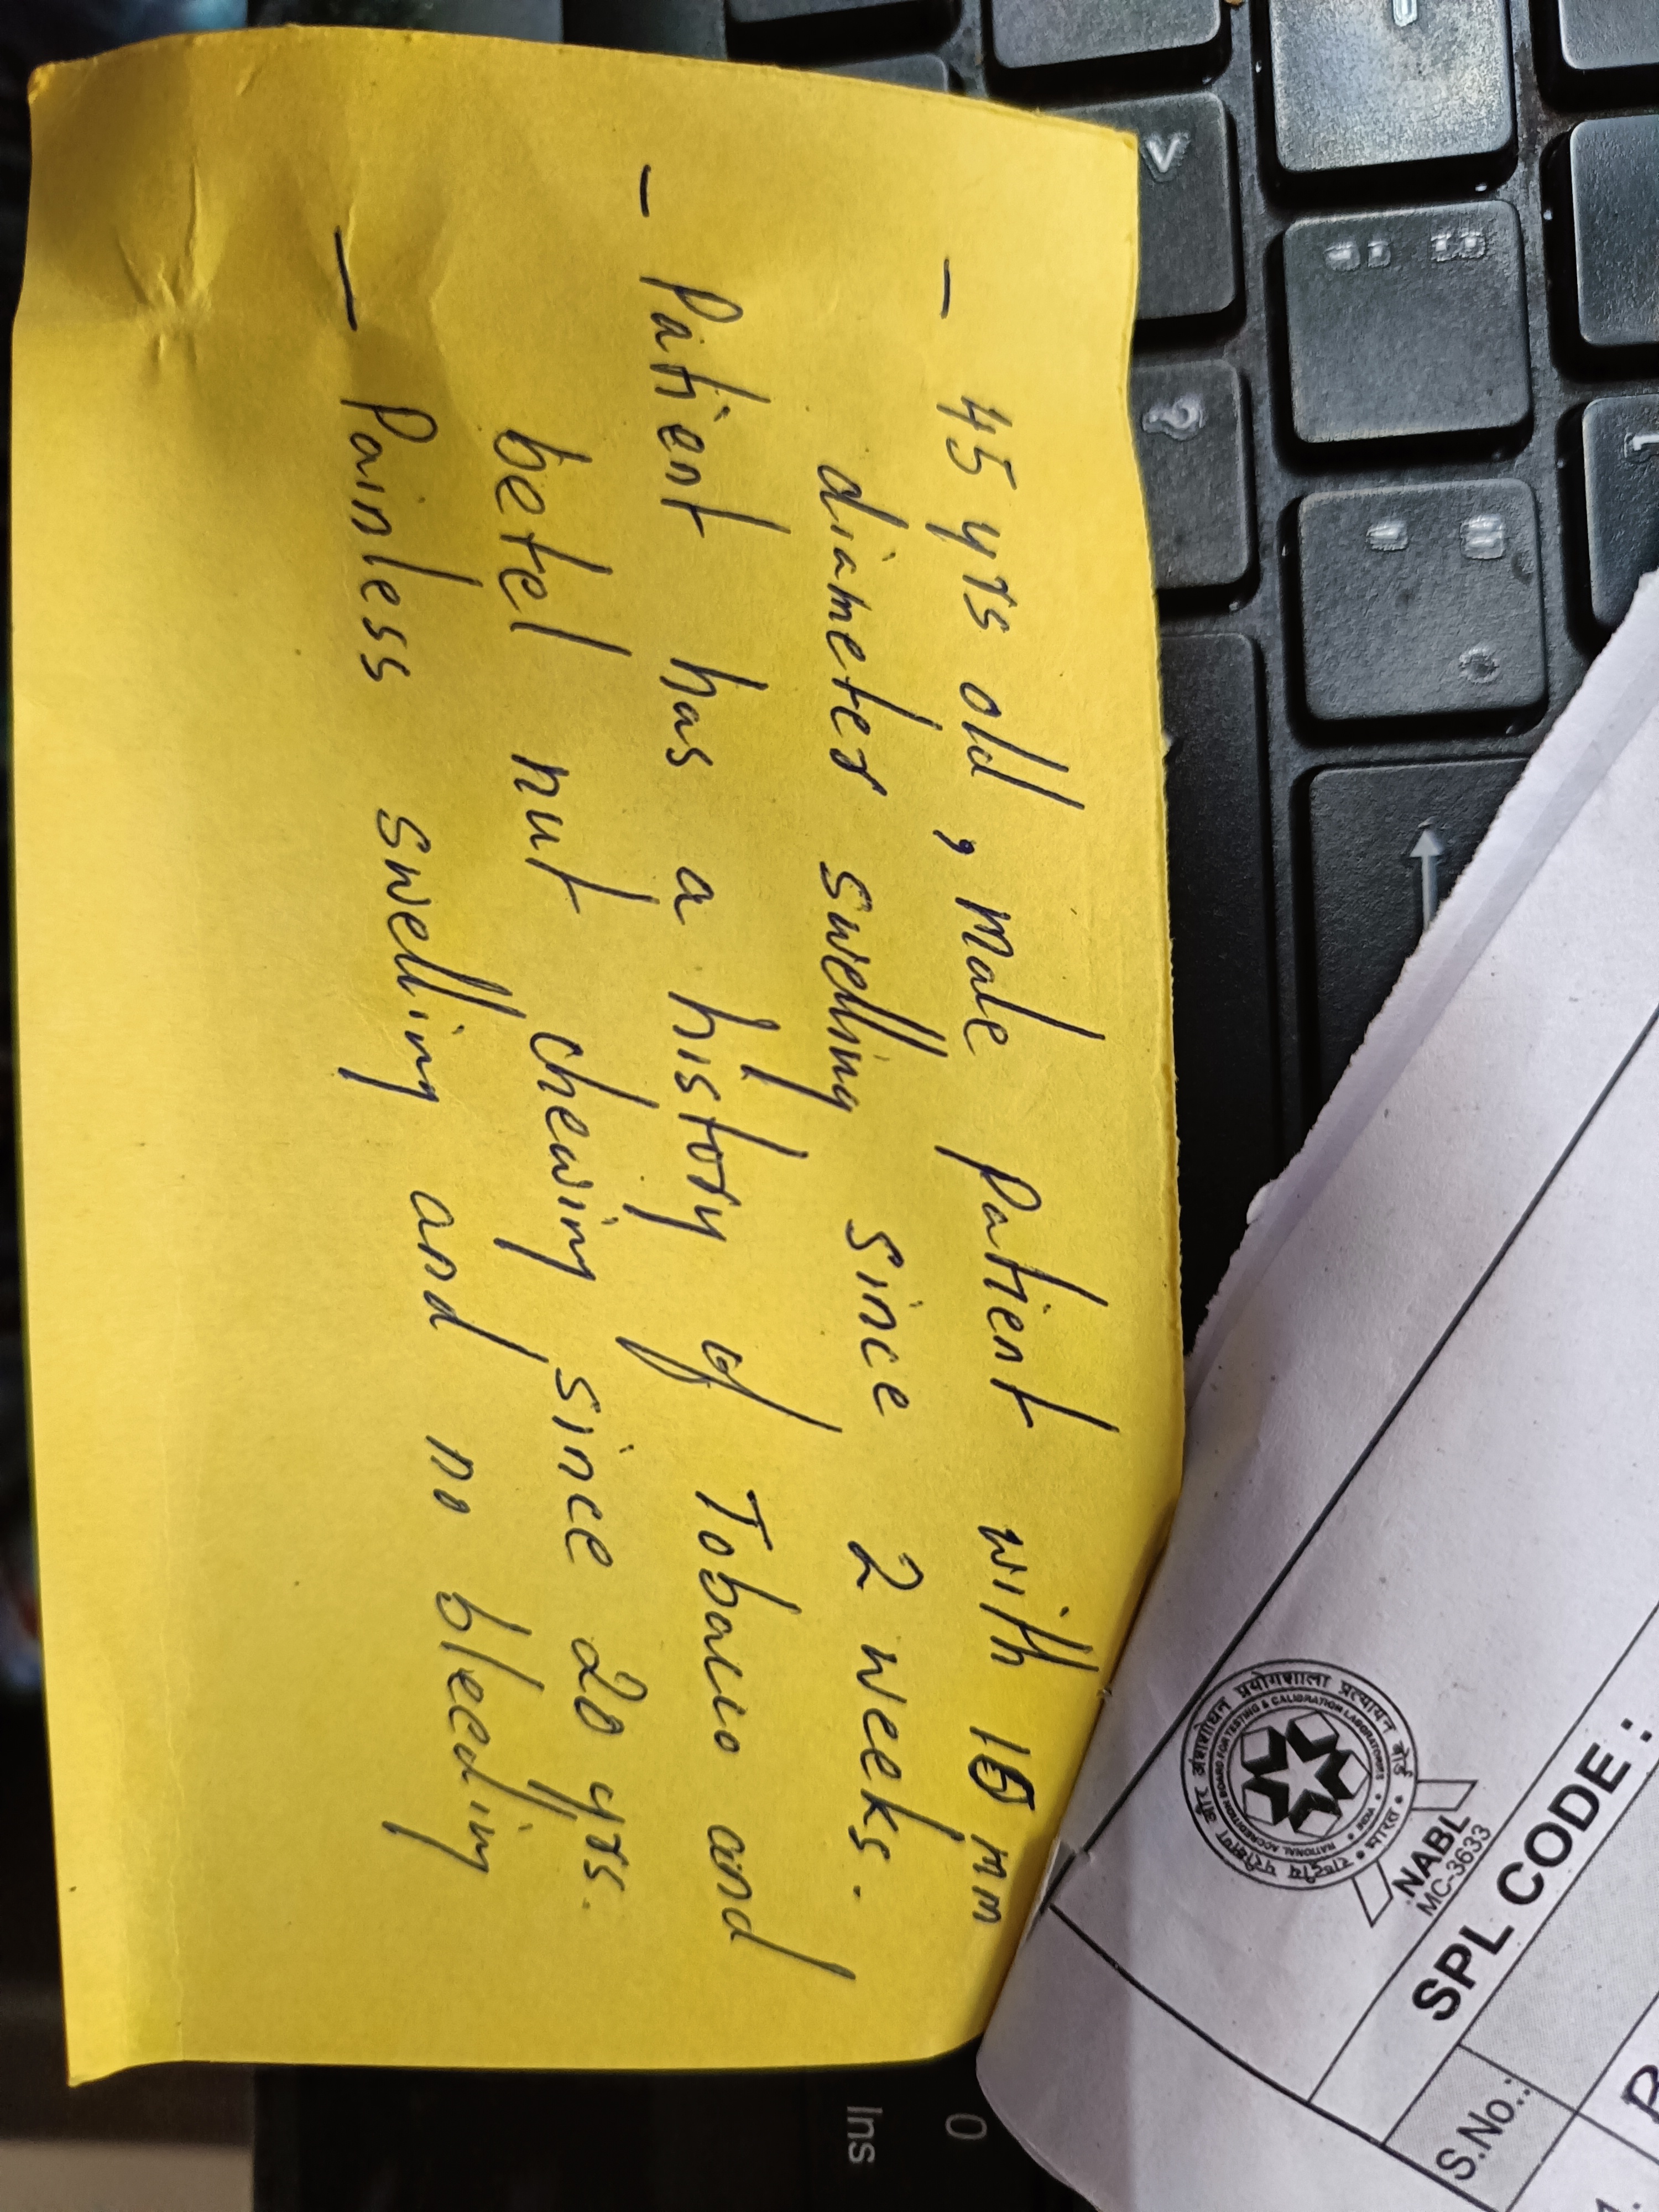 - 45 yrs old, male patient with 10 mm
diameter swelling since 2 weeks.
- Patient has a history of Tobacco and
betel nut chewing since 20 yrs.
- Painless swelling and no bleeding
राष्ट्रीय परीक्षण और अंशशोधन प्रयोगशाला प्रत्यायन बोर्ड • भारत •
NATIONAL ACCREDITATION BOARD FOR TESTING & CALIBRATION LABORATORIES • INDIA •
NABL
MC-3633
SPL CODE :
S.No.:
V
?
0
Ins